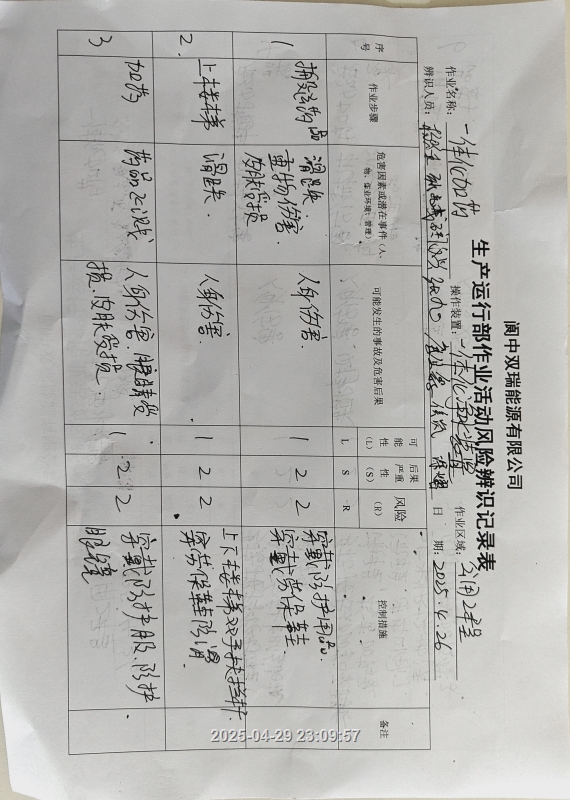 阆中双瑞能源有限公司
生产运行部作业活动风险辨识记录表
作业名称: 一体化加药 操作装置: 一体化净水装置 作业区域: 公用工程
辨识人员: 日 期: 2025.4.26
序号 作业步骤 危害因素或潜在事件(人、物、作业环境、管理) 可能发生的事故及危害后果 可能性(L) 后果严重性(S) 风险(R) 控制措施 备注
L S R
1 搬运药品 滑跌. 重物伤害. 皮肤毁损 人身伤害. 1 2 2 穿戴防护用品. 穿戴劳保鞋.
2. 上楼梯 滑跌. 人身伤害. 1 2 2 上下楼梯双手扶栏杆. 穿劳保鞋防滑
3 加药 药品飞溅 人身伤害 眼睛受损.皮肤毁损. 1 2 2 穿戴防护服.防护眼镜.
2025-04-29 23:09:57